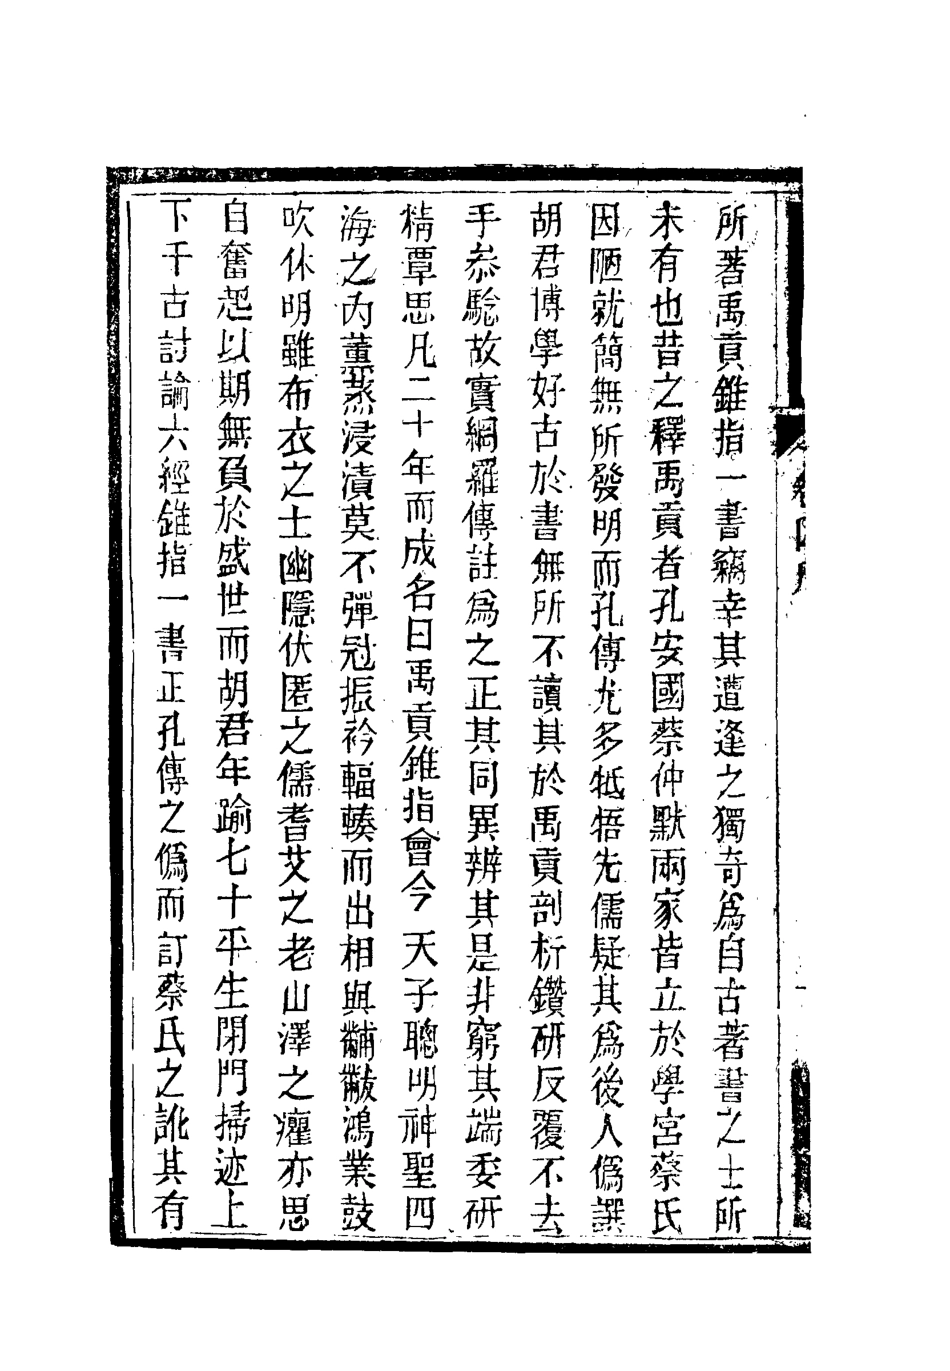 所著禹貢錐指一書竊幸其遭逢之獨奇爲自古著書之士所
未有也昔之釋禹貢者孔安國蔡仲默兩家皆立於學宮蔡氏
因陋就簡無所發明而孔傳尤多牴牾先儒疑其爲後人僞譔
胡君博學好古於書無所不讀其於禹貢剖析鑽研反覆不去
手叅驗故實網羅傳註爲之正其同異辨其是非窮其端委研
精覃思凡二十年而成名曰禹貢錐指會今天子聰明神聖四
海之內薰蒸浸漬莫不彈冠振衿輻輳而出相與黼黻鴻業鼓
吹休明雖布衣之士幽隱伏匿之儒耆艾之老山澤之癯亦思
自奮起以期無負於盛世而胡君年踰七十平生閉門掃迹上
下千古討論六經錐指一書正孔傳之僞而訂蔡氏之訛其有